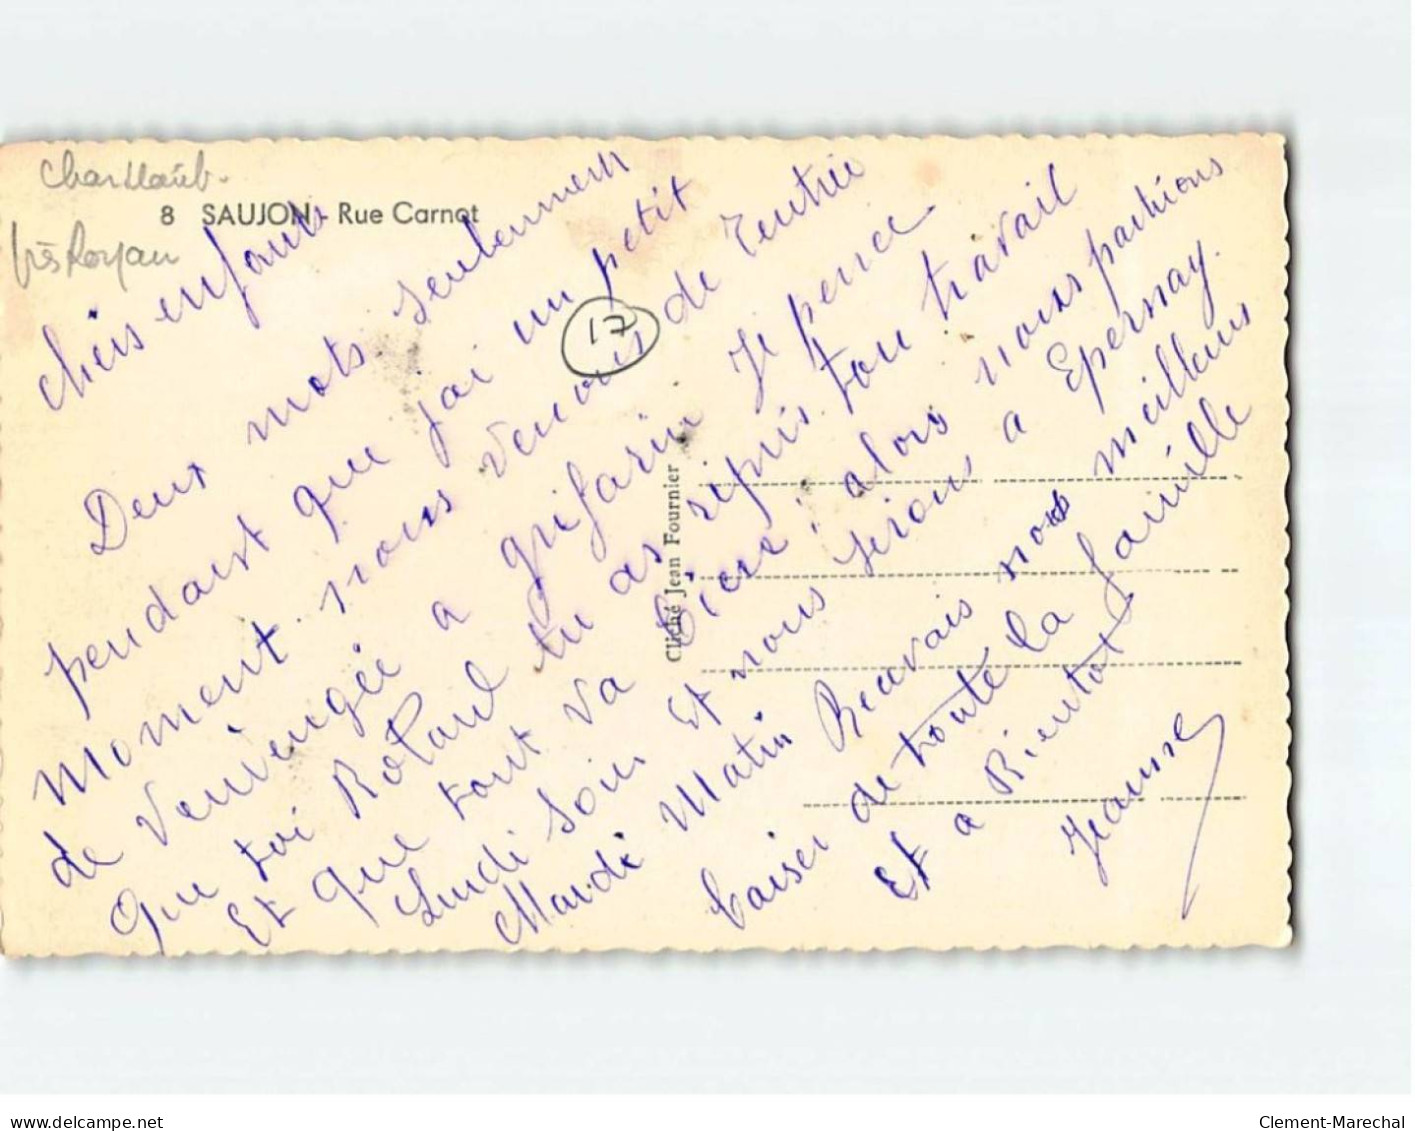 Char Marit.
8 SAUJON - Rue Carnot
près Royan
17
Cliché Jean Fournier
Chers enfants
Deux mots seulement
pendant que j'ai un petit
moment nous venons de rentrée
de Vervengée a grifarin Je pence
que toi Roland tu as repris ton travail
Et que tout va Biens, alors nous partirons
Lundi Soir Et nous serons a Epernay.
Mardi Matin Recevais nos meilleurs
baiser de toute la famille
Et a Bientot
Jeannse
delcampe.net
Clement-Marechal